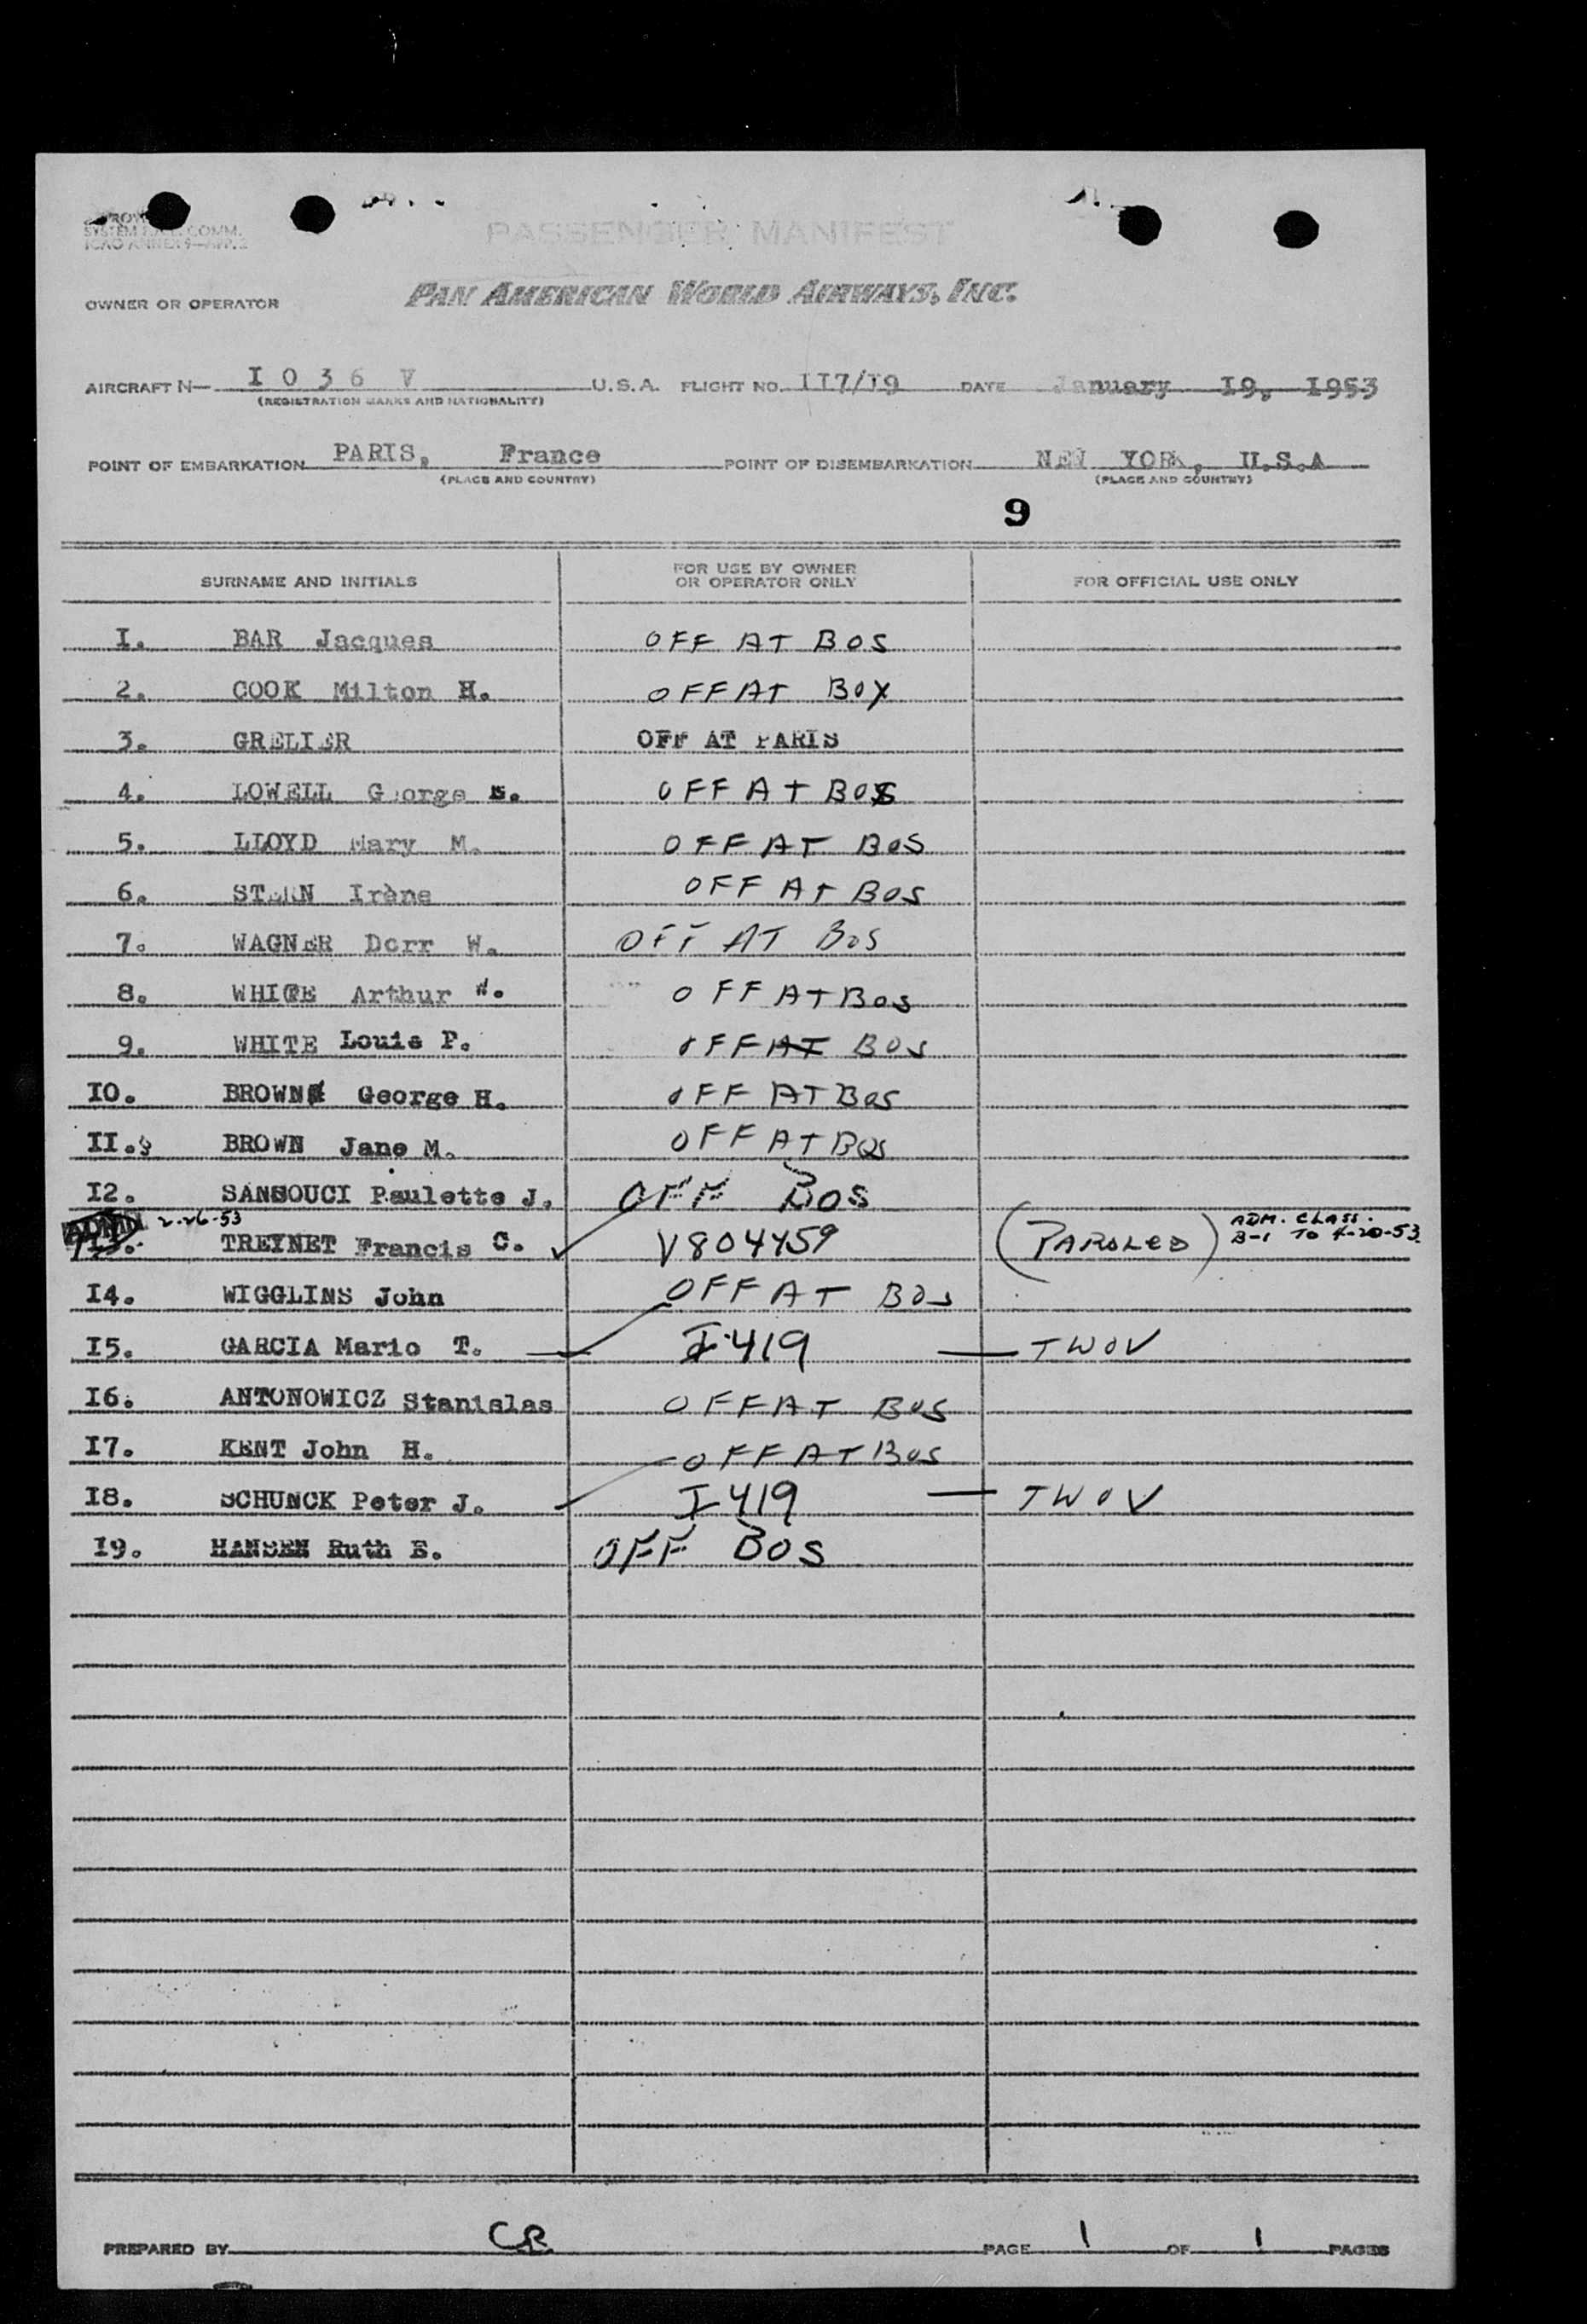 SYSTEM COMM.
ICAO ANNEX 9—APP. 2
PASSENGER MANIFEST
OWNER OR OPERATOR PAN AMERICAN WORLD AIRWAYS, INC.
AIRCRAFT N— I 0 3 6 V U.S.A. FLIGHT NO. II7/I9 DATE January I9, I953
(REGISTRATION MARKS AND NATIONALITY)
POINT OF EMBARKATION PARIS, France POINT OF DISEMBARKATION NEW YORK, U.S.A
(PLACE AND COUNTRY) (PLACE AND COUNTRY)
9
SURNAME AND INITIALS FOR USE BY OWNER OR OPERATOR ONLY FOR OFFICIAL USE ONLY
I. BAR Jacques OFF AT BOS
2. COOK Milton H. OFF AT BOX
3. GRELIER OFF AT PARIS
4. LOWELL George OFF AT BOS
5. LLOYD Mary M. OFF AT BOS
6. STERN Irène OFF AT BOS
7. WAGNER Dorr W. OFF AT BOS
8. WHITE Arthur W. OFF AT BOS
9. WHITE Louis P. OFF AT BOS
IO. BROWN George H. OFF AT BOS
II. BROWN Jane M. OFF AT BOS
I2. SANSOUCI Paulette J. OFF BOS
2-26-53
I3. TREYNET Francis C. V804459 (PAROLED) ADM. CLASS.
B-1 TO 4-20-53
I4. WIGGLINS John OFF AT BOS
I5. GARCIA Mario T. I-419 — TWOV
I6. ANTONOWICZ Stanislas OFF AT BOS
I7. KENT John H. OFF AT BOS
I8. SCHUNCK Peter J. I-419 — TWOV
I9. HANSEN Ruth E. OFF BOS
PREPARED BY CR PAGE 1 OF 1 PAGES